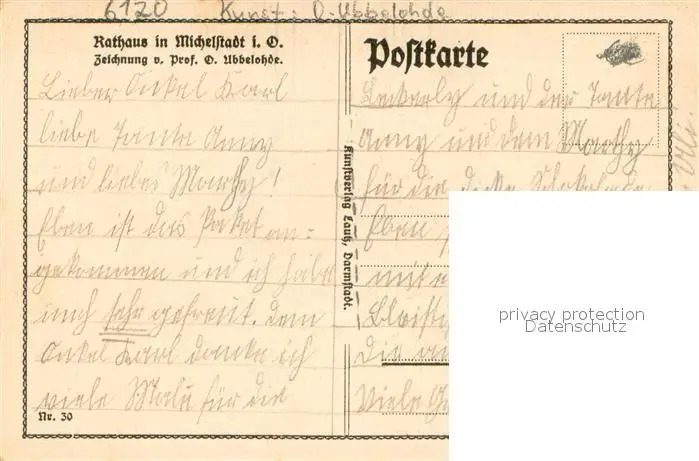 6120 Kunst: O. Ubbelohde
Rathaus in Michelstadt i. O.
Zeichnung v. Prof. O. Ubbelohde.
Postkarte
Lieber Onkel Karl
liebe Tante Anny
und liebes Marthy!
Eben ist das Paket an-
gekommen und ich habe
mich sehr gefreut. Dem
Onkel Karl danke ich
viele Male für die
Nr. 30
Kunstverlag Lautz, Darmstadt.
und der Tante
Anny und dem Marthy
für die Schokolade
Eben
mit
Die
Viele
privacy protection
Datenschutz